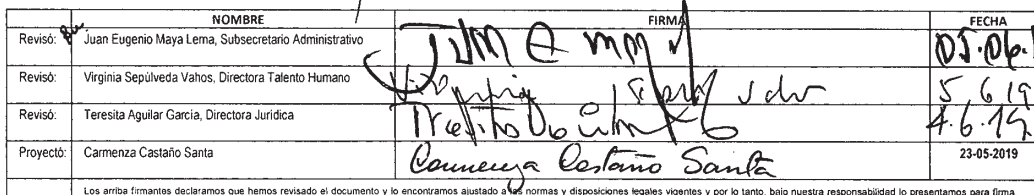 NOMBRE FIRMA FECHA
Revisó: Juan Eugenio Maya Lema, Subsecretario Administrativo 05.06.
Revisó: Virginia Sepúlveda Vahos, Directora Talento Humano Virginia 5 6 19
Revisó: Teresita Aguilar Garcia, Directora Jurídica 4.6.19
Proyectó: Carmenza Castaño Santa Carmenza Castaño Santa 23-05-2019
Los arriba firmantes declaramos que hemos revisado el documento y lo encontramos ajustado a las normas y disposiciones legales vigentes y por lo tanto, bajo nuestra responsabilidad lo presentamos para firma